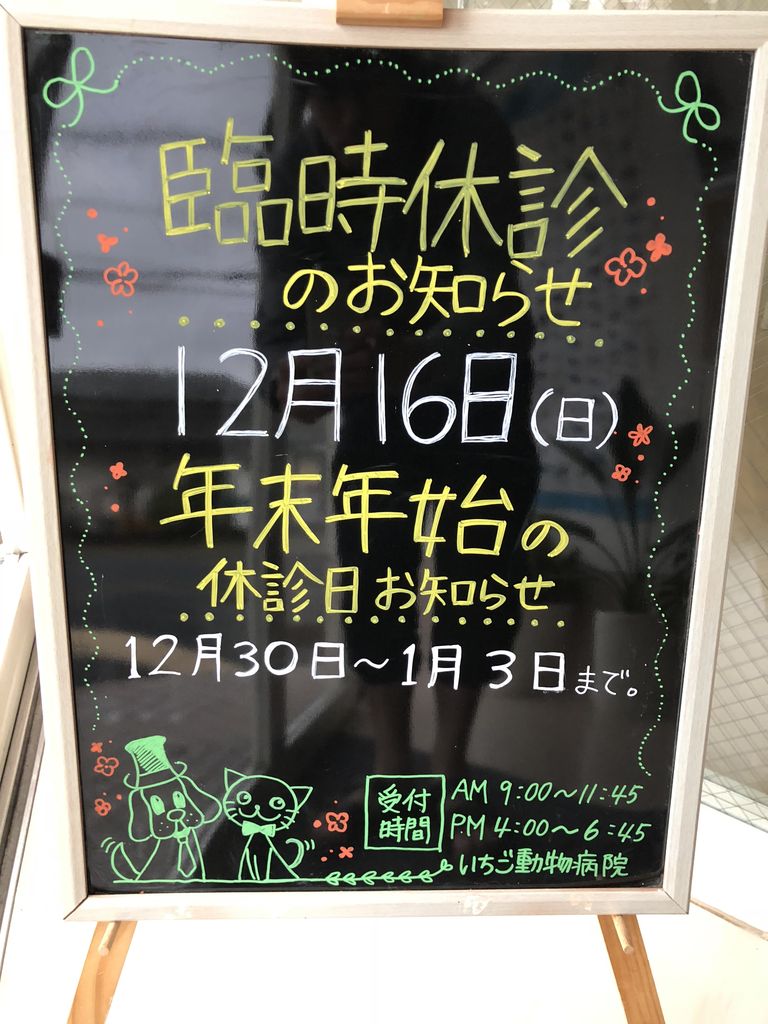 臨時休診
のお知らせ
12月16日(日)
年末年始の
休診日お知らせ
12月30日〜1月3日まで。
受付
時間
AM 9:00〜11:45
PM 4:00〜6:45
いちご動物病院